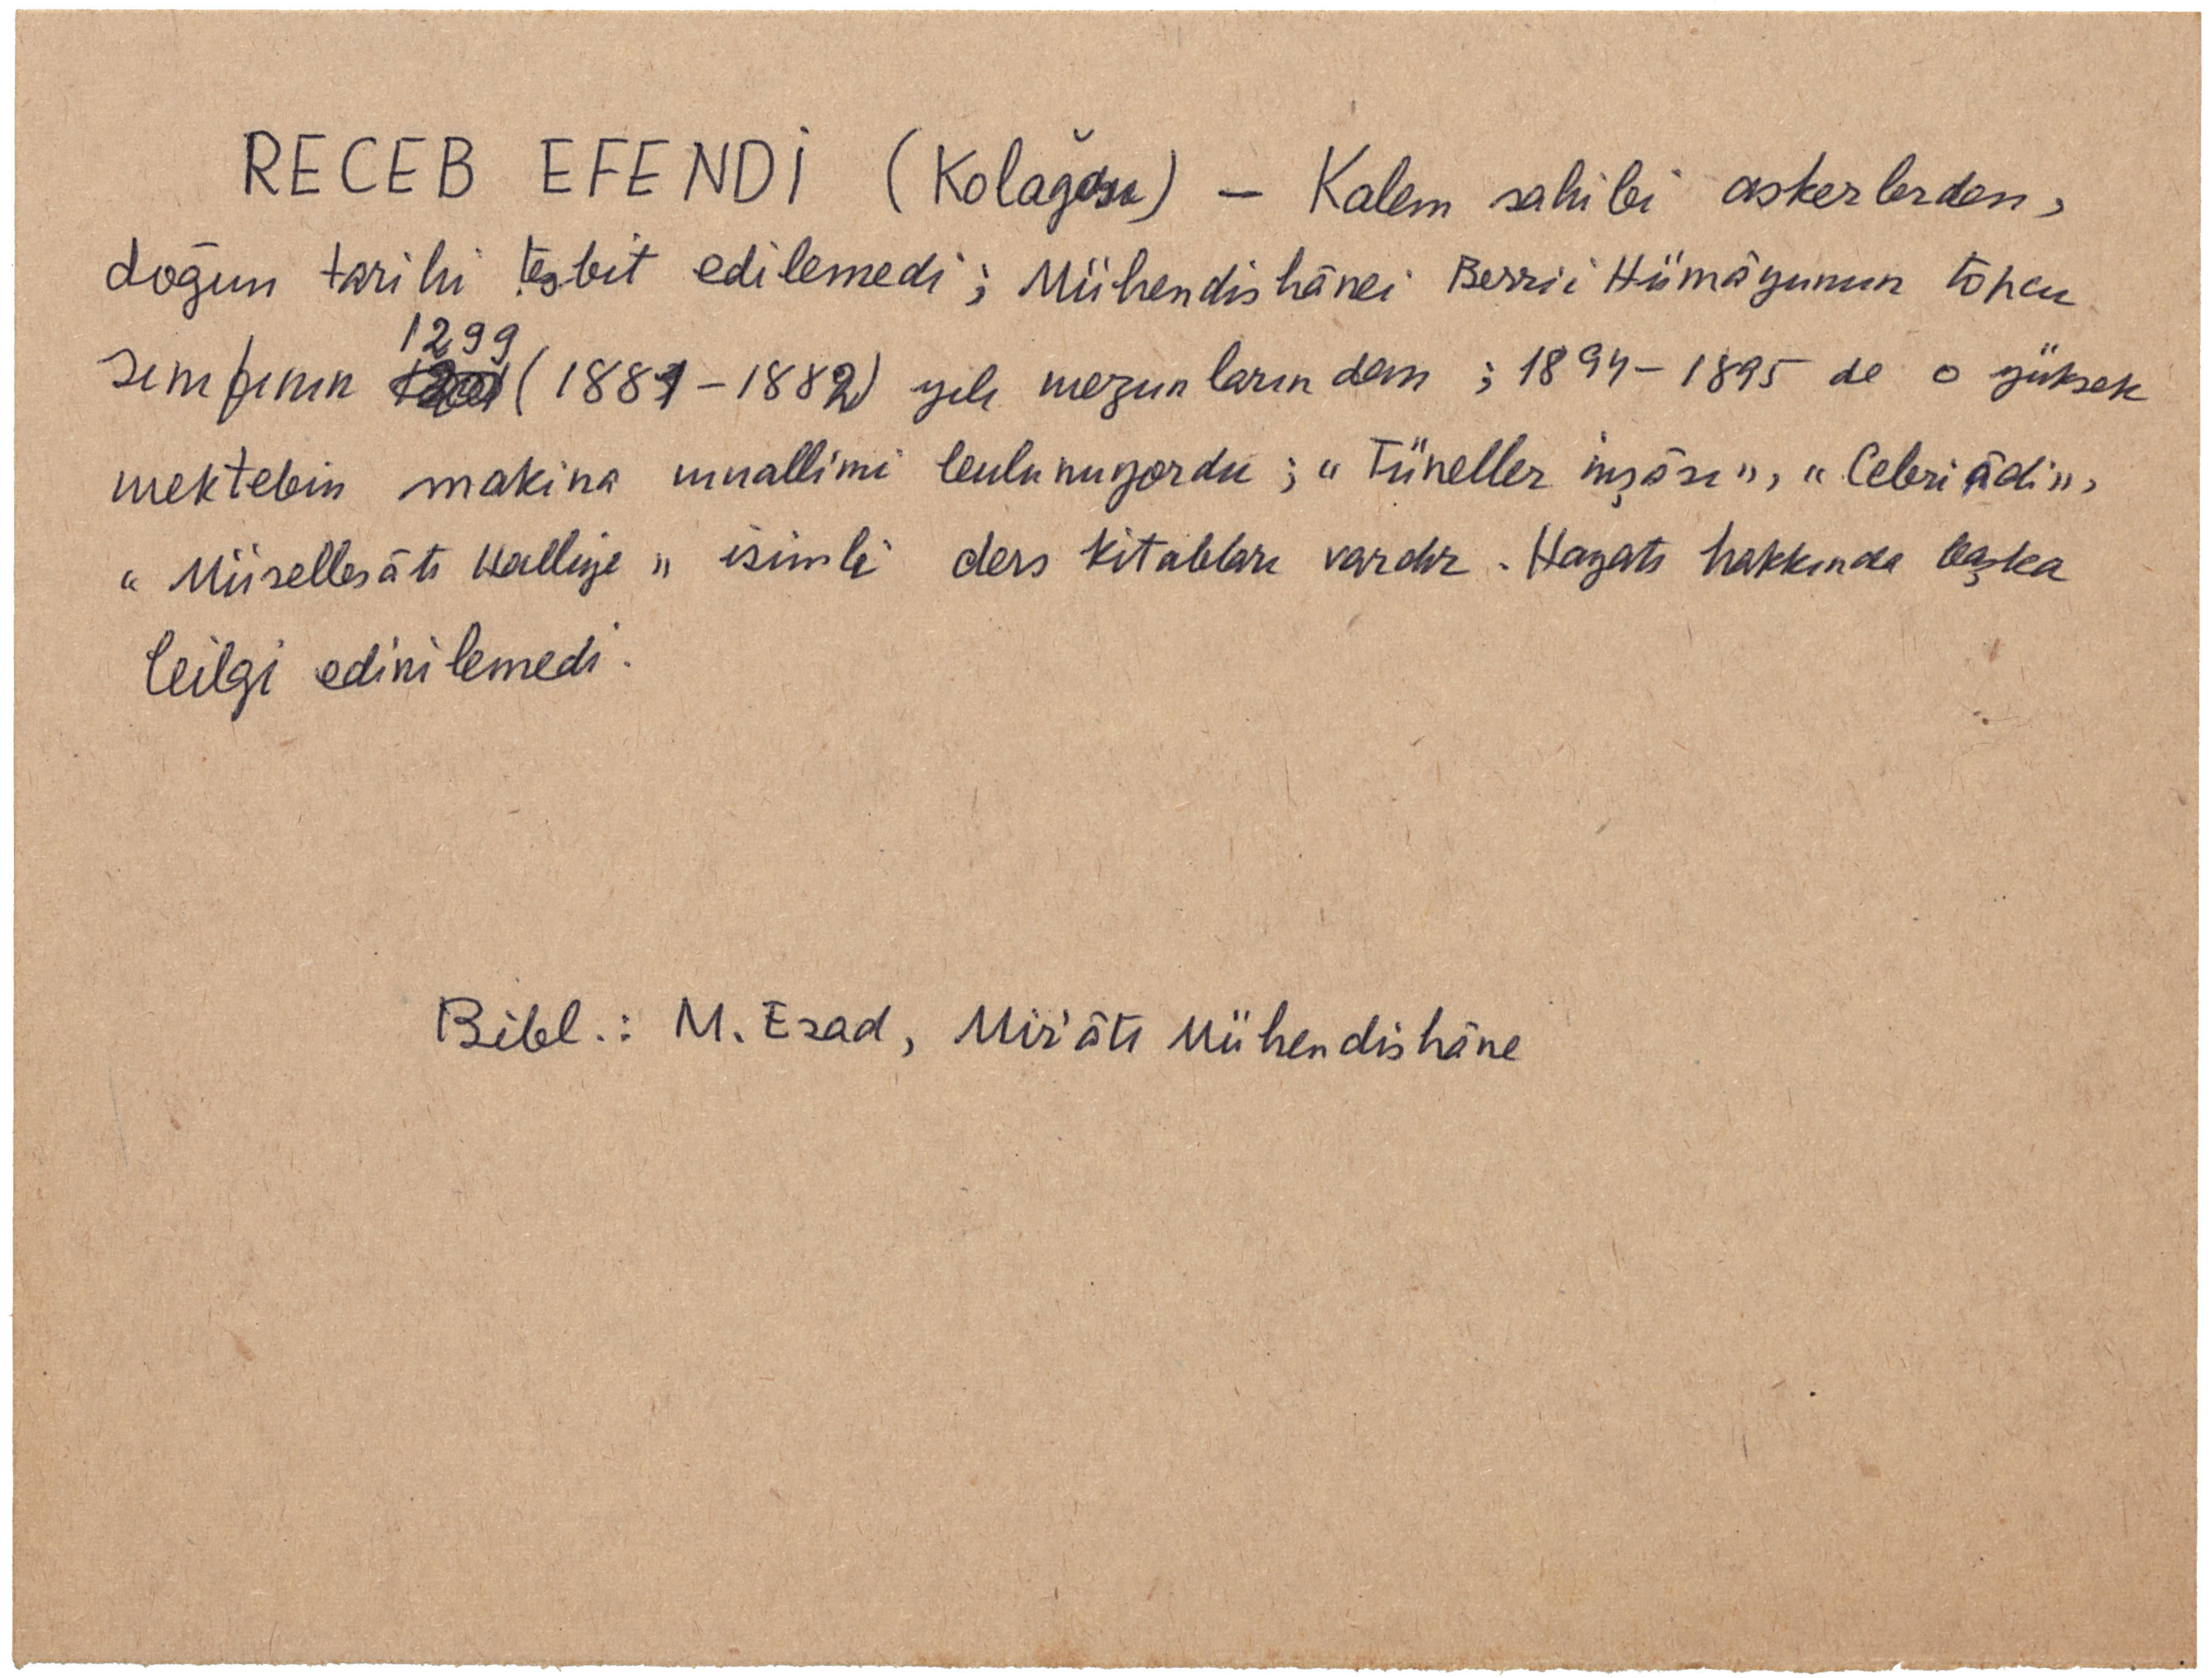 RECEB EFENDİ (Kolağası) — Kalem sahibi askerlerden,
doğum tarihi tesbit edilemedi; Mühendishânei Berrii Hümâyunun topcu
sınıfının 1299 (1881-1882) yılı mezunlarından; 1894-1895 de o yüksek
mektebin makina muallimi bulunuyordu; "Tüneller inşâsı", "Cebri âdi",
"Müsellesâtı Halliye" isimli ders kitabları vardır. Hayatı hakkında başka
bilgi edinilemedi.
Bibl.: M. Esad, Mir'âtı Mühendishâne